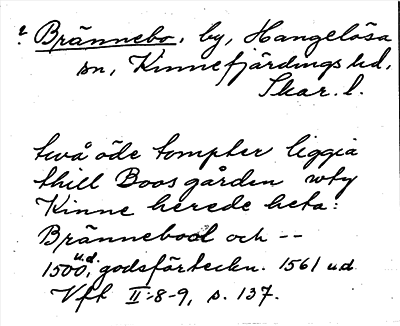 ? Brännebo, by, Hangelösa
sn, Kinnefjärdings hd,
Skar. l.
två öde tompter liggia
thill Boos gården wty
Kinne herede heta:
Brännebool och --
1500, u.d. godsförteckn. 1561 u.d
Vft II:8-9, s. 137.